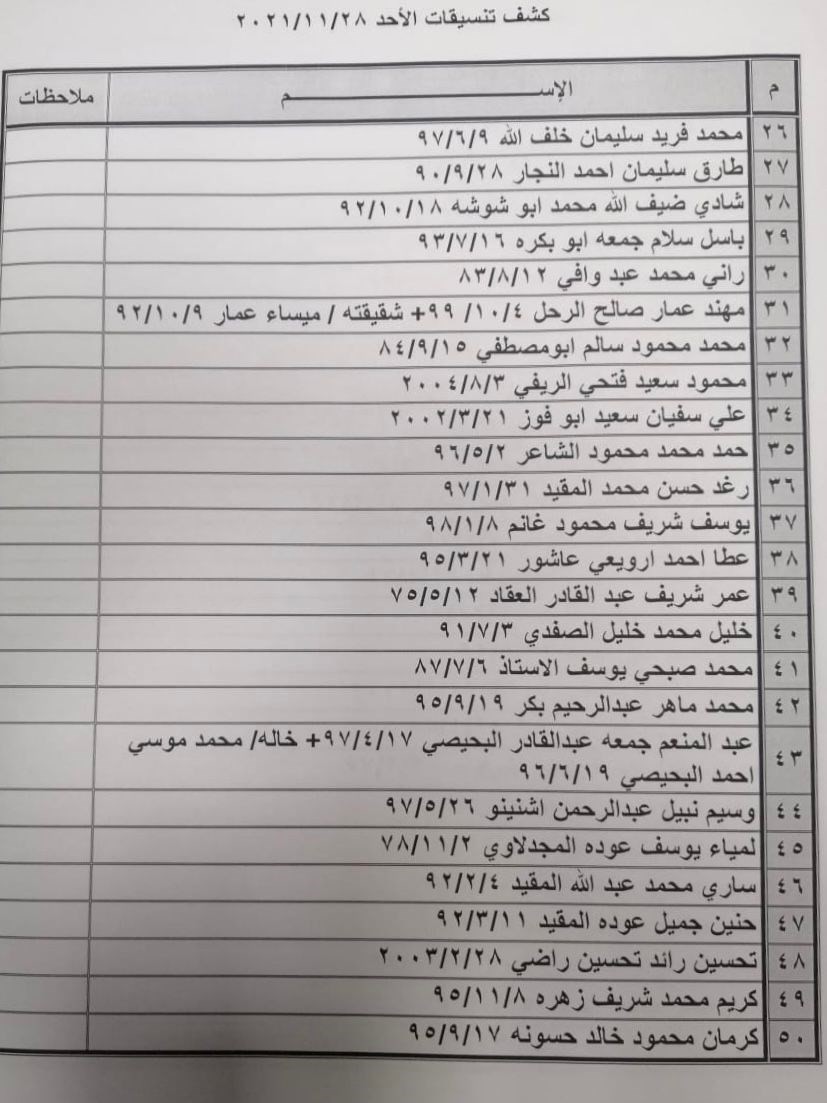 كشف تنسيقات الأحد ٢٠٢١/١١/٢٨
م الإســــــــم ملاحظات
٢٦ محمد فريد سليمان خلف الله ٩٧/٦/٩
٢٧ طارق سليمان احمد النجار ٩٠/٩/٢٨
٢٨ شادي ضيف الله محمد ابو شوشه ٩٢/١٠/١٨
٢٩ باسل سلام جمعه ابو بكره ٩٣/٧/١٦
٣٠ راني محمد عبد وافي ٨٣/٨/١٢
٣١ مهند عمار صالح الرحل ٩٩/١٠/٤+ شقيقته / ميساء عمار ٩٢/١٠/٩
٣٢ محمد محمود سالم ابومصطفي ٨٤/٩/١٥
٣٣ محمود سعيد فتحي الريفي ٢٠٠٤/٨/٣
٣٤ علي سفيان سعيد ابو فوز ٢٠٠٢/٣/٢١
٣٥ حمد محمد محمود الشاعر ٩٦/٥/٢
٣٦ رغد حسن محمد المقيد ٩٧/١/٣١
٣٧ يوسف شريف محمود غانم ٩٨/١/٨
٣٨ عطا احمد ارويعي عاشور ٩٥/٣/٢١
٣٩ عمر شريف عبد القادر العقاد ٧٥/٥/١٢
٤٠ خليل محمد خليل الصفدي ٩١/٧/٣
٤١ محمد صبحي يوسف الاستاذ ٨٧/٧/٦
٤٢ محمد ماهر عبدالرحيم بكر ٩٥/٩/١٩
٤٣ عبد المنعم جمعه عبدالقادر البحيصي ٩٧/٤/١٧+ خاله/ محمد موسي
احمد البحيصي ٩٦/٦/١٩
٤٤ وسيم نبيل عبدالرحمن اشنينو ٩٧/٥/٢٦
٤٥ لمياء يوسف عوده المجدلاوي ٧٨/١١/٢
٤٦ ساري محمد عبد الله المقيد ٩٢/٢/٤
٤٧ حنين جميل عوده المقيد ٩٢/٣/١١
٤٨ تحسين رائد تحسين راضي ٢٠٠٣/٢/٢٨
٤٩ كريم محمد شريف زهره ٩٥/١١/٨
٥٠ كرمان محمود خالد حسونه ٩٥/٩/١٧